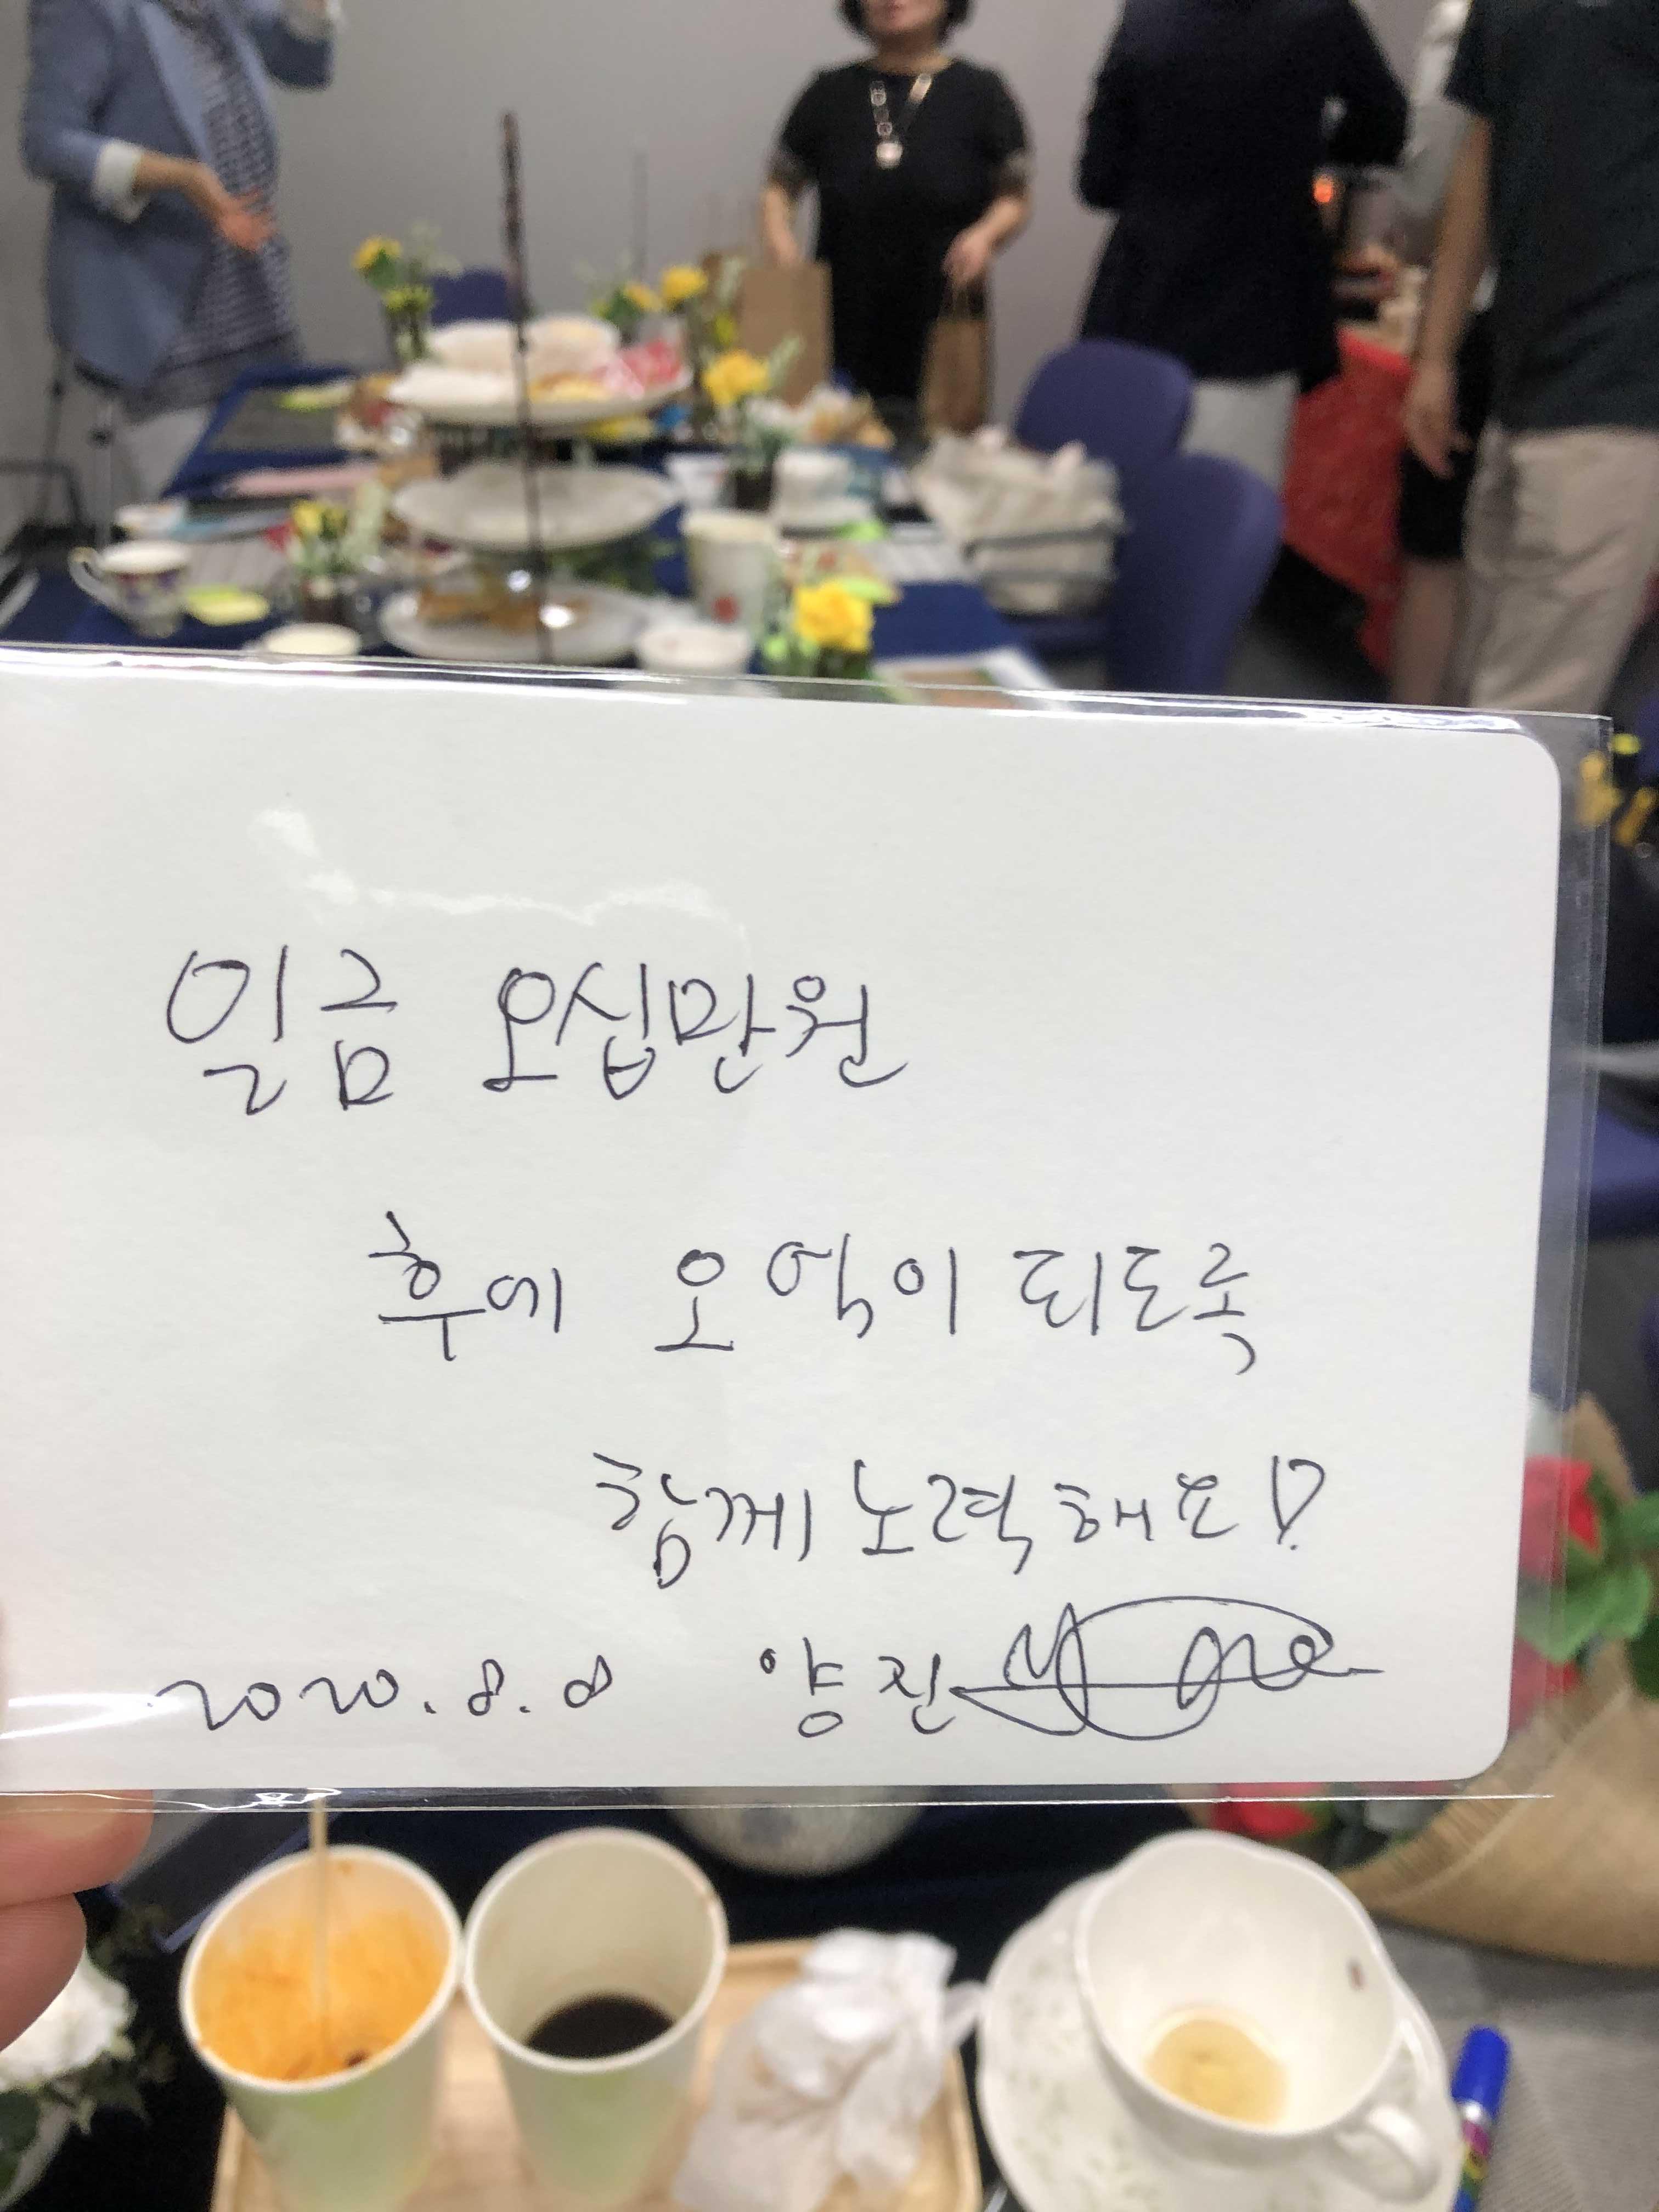 일금 오십만원
후에 오억이 되도록
함께 노력해요!
2020.8.8 양진